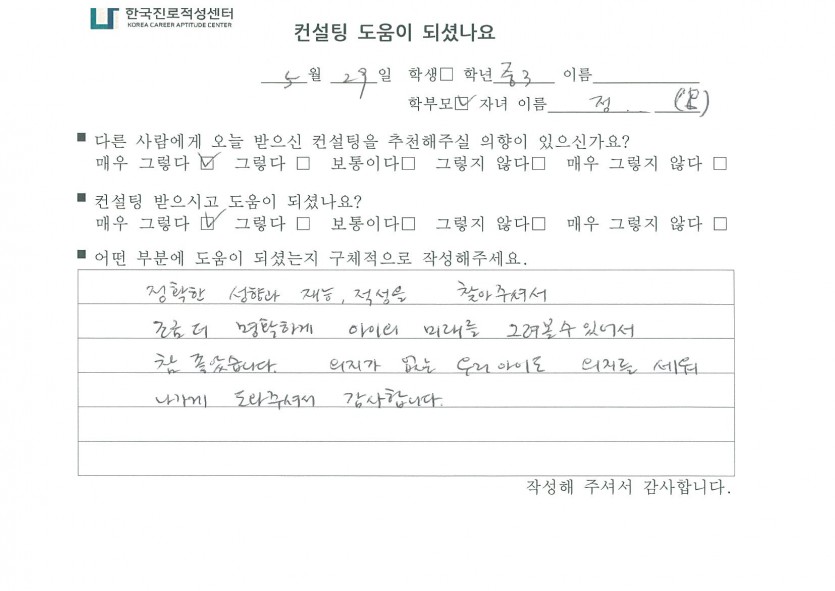 한국진로적성센터
KOREA CAREER APTITUDE CENTER
컨설팅 도움이 되셨나요
5월 29일 학생□ 학년 중3 이름
학부모☑ 자녀 이름 정
■ 다른 사람에게 오늘 받으신 컨설팅을 추천해주실 의향이 있으신가요?
매우 그렇다 ☑ 그렇다 □ 보통이다□ 그렇지 않다□ 매우 그렇지 않다 □
■ 컨설팅 받으시고 도움이 되셨나요?
매우 그렇다 ☑ 그렇다 □ 보통이다□ 그렇지 않다□ 매우 그렇지 않다 □
■ 어떤 부분에 도움이 되셨는지 구체적으로 작성해주세요.
정확한 성향과 재능, 적성을 찾아주셔서
조금 더 명확하게 아이의 미래를 그려볼 수 있어서
참 좋았습니다. 의지가 없는 우리 아이도 의지를 세워
나가게 도와주셔서 감사합니다.
작성해 주셔서 감사합니다.